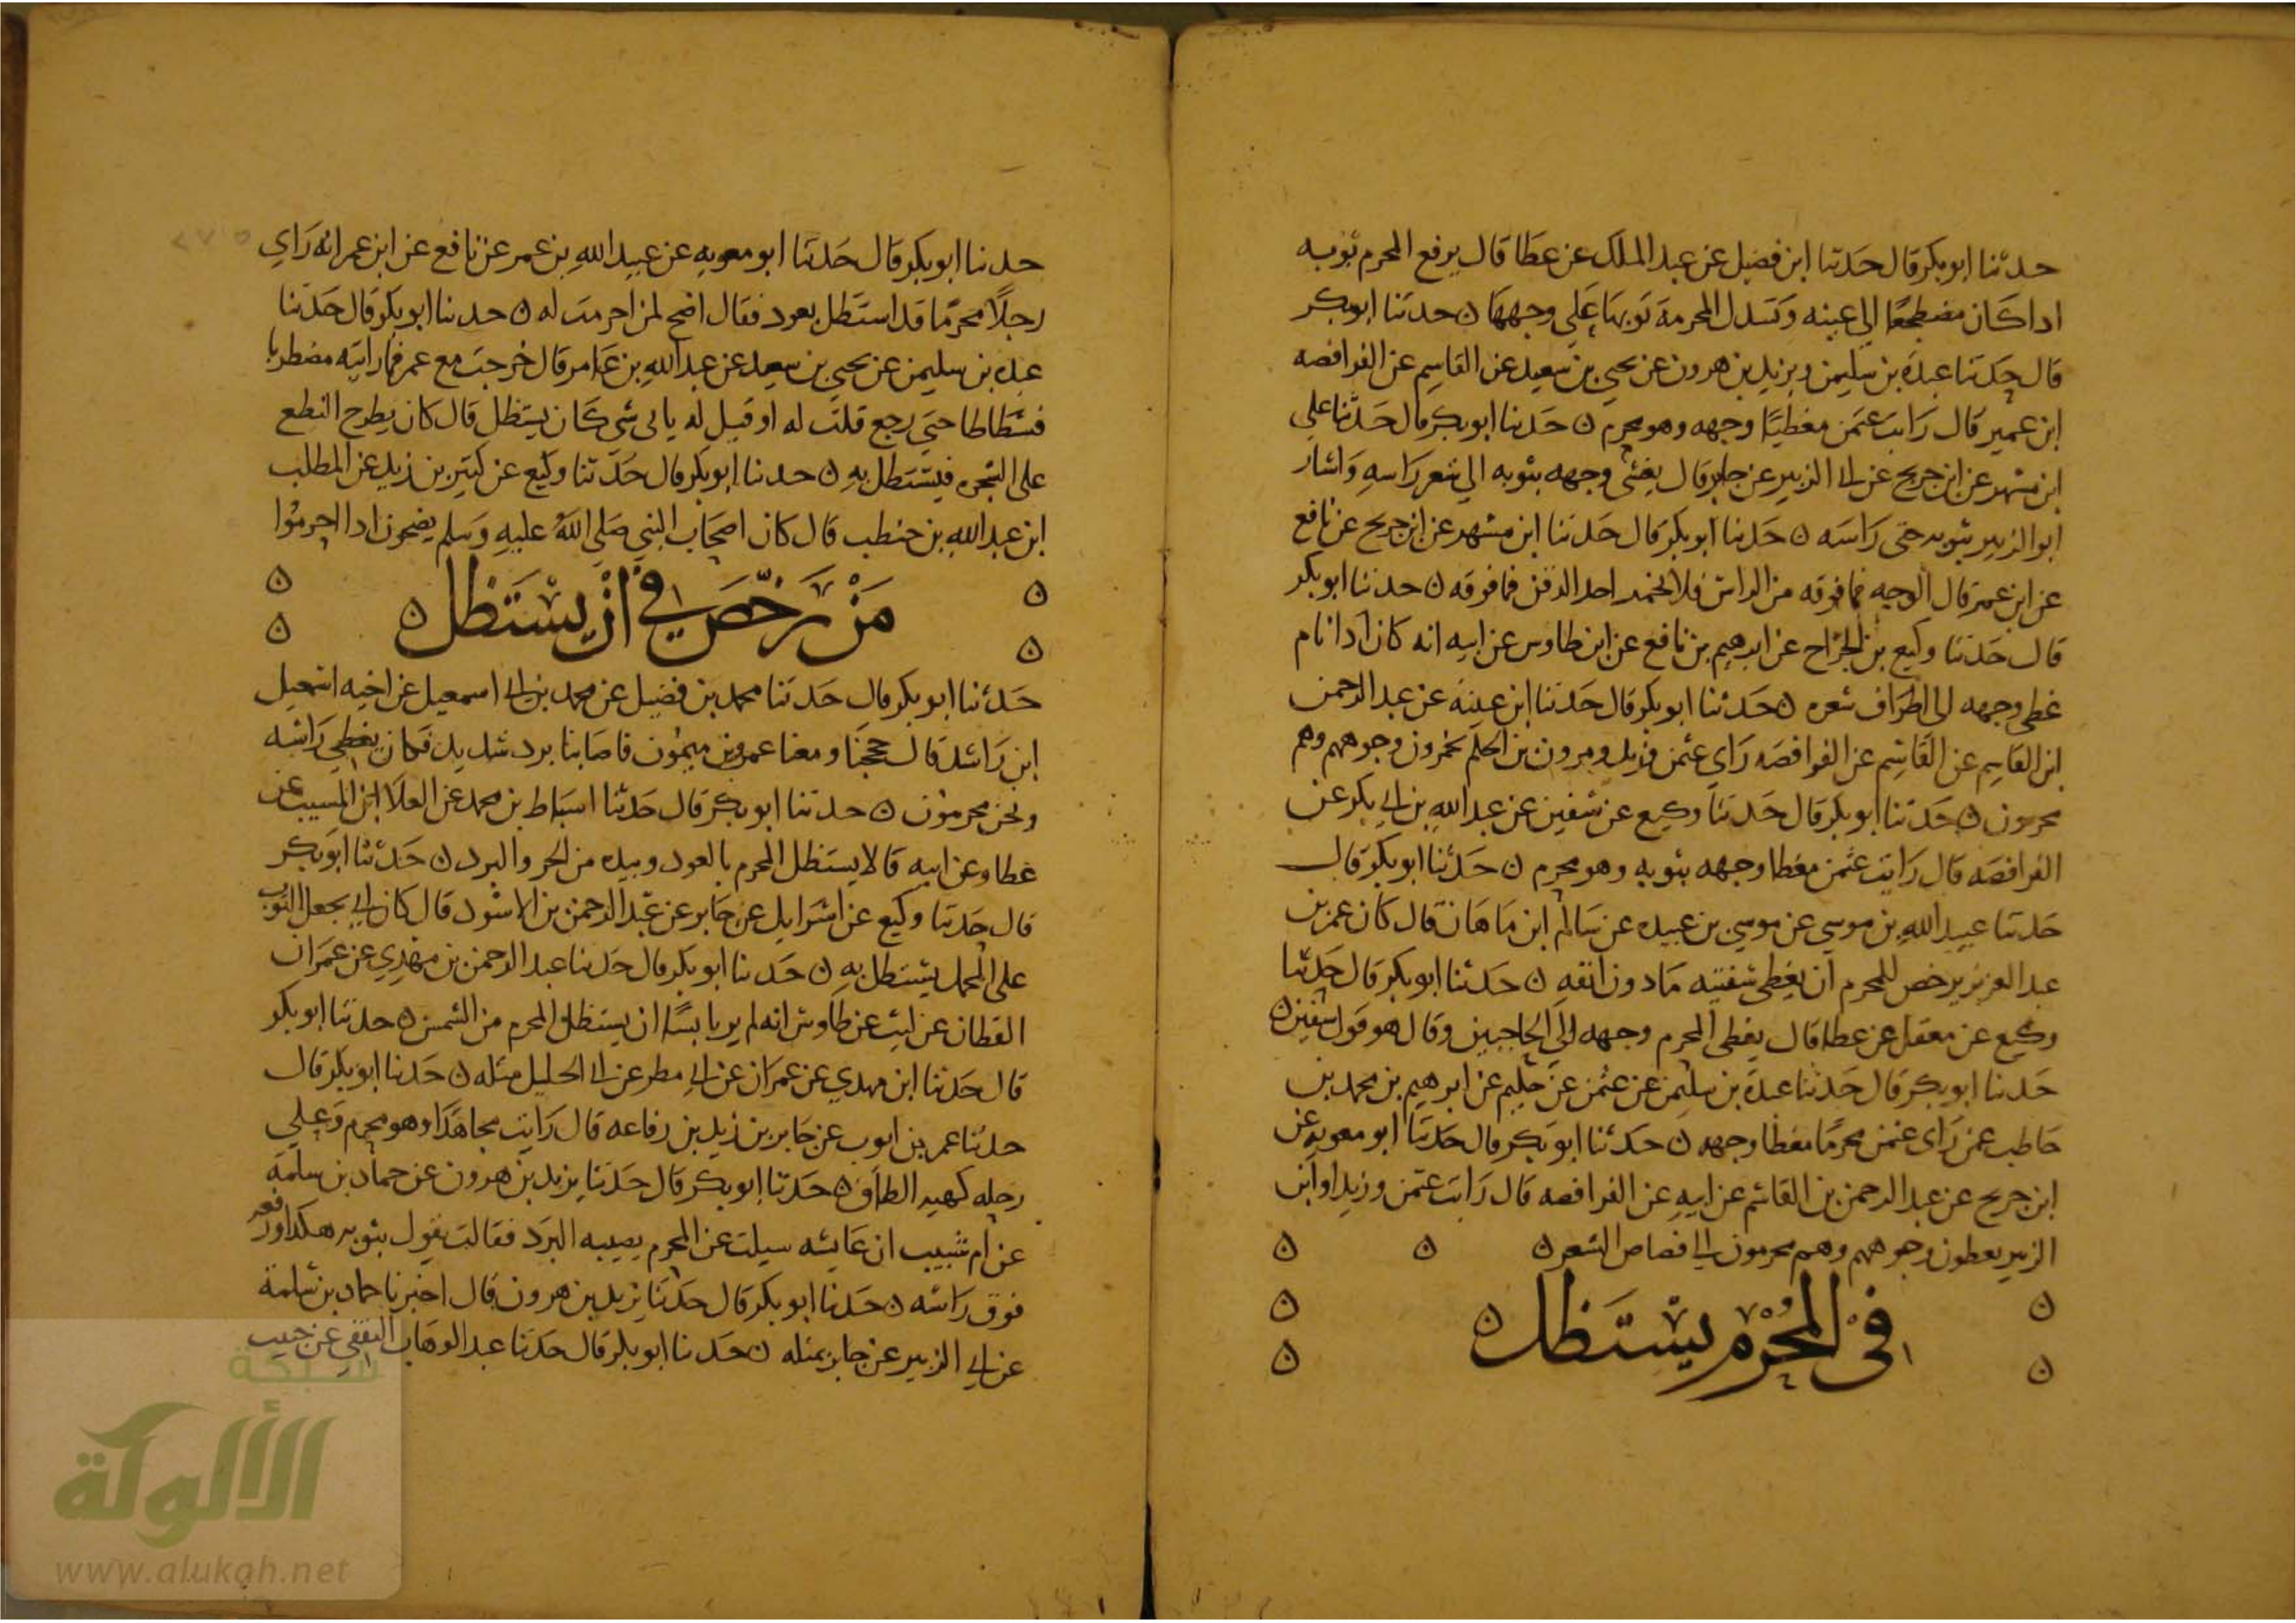 حدثنا ابو بكر قال حدثنا ابن فضيل عن عبد الملك عن عطا قال يرفع المحرم ثوبه
اذا كان مضطجعا الى عينه وتسدل المحرمة ثوبها على وجهها ن حدثنا ابو بكر
قال حدثنا عبدة بن سليمن ويزيد بن هرون عن يحيى بن سعيد عن القاسم عن الفرافصه
ابن عمير قال رايت عثمن مغطيا وجهه وهو محرم ن حدثنا ابو بكر قال حدثنا علي
ابن مسهر عن ابن جريج عن ابي الزبير عن جابر قال يغشى وجهه بثوبه الى شعر راسه واشار
ابو الزبير بثوبه حتى راسه ن حدثنا ابو بكر قال حدثنا ابن مسهر عن ابن جريج عن نافع
عن ابن عمر قال الوجه فما فوقه من الراس فلا يخمر احد الذقن فما فوقه ن حدثنا ابو بكر
قال حدثنا وكيع بن الجراح عن ابرهيم بن نافع عن ابن طاوس عن ابيه انه كان اذا نام
غطى وجهه الى اطراف شعره ن حدثنا ابو بكر قال حدثنا ابن عيينه عن عبد الرحمن
ابن القاسم عن القاسم عن الفرافصه راى عثمن وزيد ومرون بن الحكم يخمرون وجوههم وهم
محرمون ن حدثنا ابو بكر قال حدثنا وكيع عن سفين عن عبد الله بن ابي بكر عن
الفرافصه قال رايت عثمن مغطا وجهه بثوبه وهو محرم ن حدثنا ابو بكر قال
حدثنا عبيد الله بن موسى عن موسى بن عبيده عن سالم ابن ماهان قال كان عمر بن
عبد العزيز يرخص للمحرم ان يغطي شفتيه ما دون انفه ن حدثنا ابو بكر قال حدثنا
وكيع عن معقل عن عطا قال يغطى المحرم وجهه الى الحاجبين وقال هو قول سفين ن
حدثنا ابو بكر قال حدثنا عبدة بن سليمن عن عثمن عن حكيم عن ابرهيم بن محمد بن
حاطب عمن راى عثمن محرما مغطا وجهه ن حدثنا ابو بكر قال حدثنا ابو معويه عن
ابن جريج عن عبد الرحمن بن القاسم عن ابيه عن الفرافصه قال رايت عثمن وزيد او ابن
الزبير يغطون وجوههم وهم محرمون الى قصاص الشعر ن
في المحرم يستظل ن
حدثنا ابو بكر قال حدثنا ابو معويه عن عبيد الله بن عمر عن نافع عن ابن عمر انه راى
رجلا محرما قد استظل بعود فقال اضح لمن احرمت له ن حدثنا ابو بكر قال حدثنا
عبده بن سليمن عن يحيى بن سعيد عن عبد الله بن عامر قال خرجت مع عمر فما رايته مضطربا
فسطاطا حتى رجع قلت له او قيل له باي شي كان يستظل قال كان يطرح النطع
على الشجره فيستظل به ن حدثنا ابو بكر قال حدثنا وكيع عن كثير بن زيد عن المطلب
ابن عبد الله بن حنطب قال كان اصحاب النبي صلى الله عليه وسلم يضحون اذا احرموا
من رخص في ان يستظل ن
حدثنا ابو بكر قال حدثنا محمد بن فضيل عن محمد بن ابي اسمعيل عن اخيه اسمعيل
ابن راشد قال حججنا ومعنا عمرو بن ميمون فاصابنا برد شديد فكان يغطي راسه
ونحن محرمون ن حدثنا ابو بكر قال حدثنا اسباط بن محمد عن العلا ابن المسيب عن
عطا وعن ابيه قالا يستظل المحرم بالعود وبيده من الحر والبرد ن حدثنا ابو بكر
قال حدثنا وكيع عن اسرايل عن جابر عن عبد الرحمن بن الاسود قال كان ابي يجعل الثوب
على المحمل يستظل به ن حدثنا ابو بكر قال حدثنا عبد الرحمن بن مهدي عن عمران
القطان عن ليث عن طاوس انه لم ير باسا ان يستظل المحرم من الشمس ن حدثنا ابو بكر
قال حدثنا ابن مهدي عن عمران عن ابي مطر عن ابي الخليل مثله ن حدثنا ابو بكر قال
حدثنا عمر بن ايوب عن جابر بن زيد بن رفاعه قال رايت مجاهدا وهو محرم وعلى
رحله كهيه الطاق ن حدثنا ابو بكر قال حدثنا يزيد بن هرون عن حماد بن سلمة
عن ام شبيب ان عايشه سيلت عن المحرم يصيبه البرد فقالت يقول بثوبه هكذا ورفعه
فوق راسه ن حدثنا ابو بكر قال حدثنا يزيد بن هرون قال اخبرنا حماد بن سلمة
عن ابي الزبير عن جابر بمثله ن حدثنا ابو بكر قال حدثنا عبد الوهاب الثقفي عن حبيب
شبكة
الألوكة
www.alukah.net